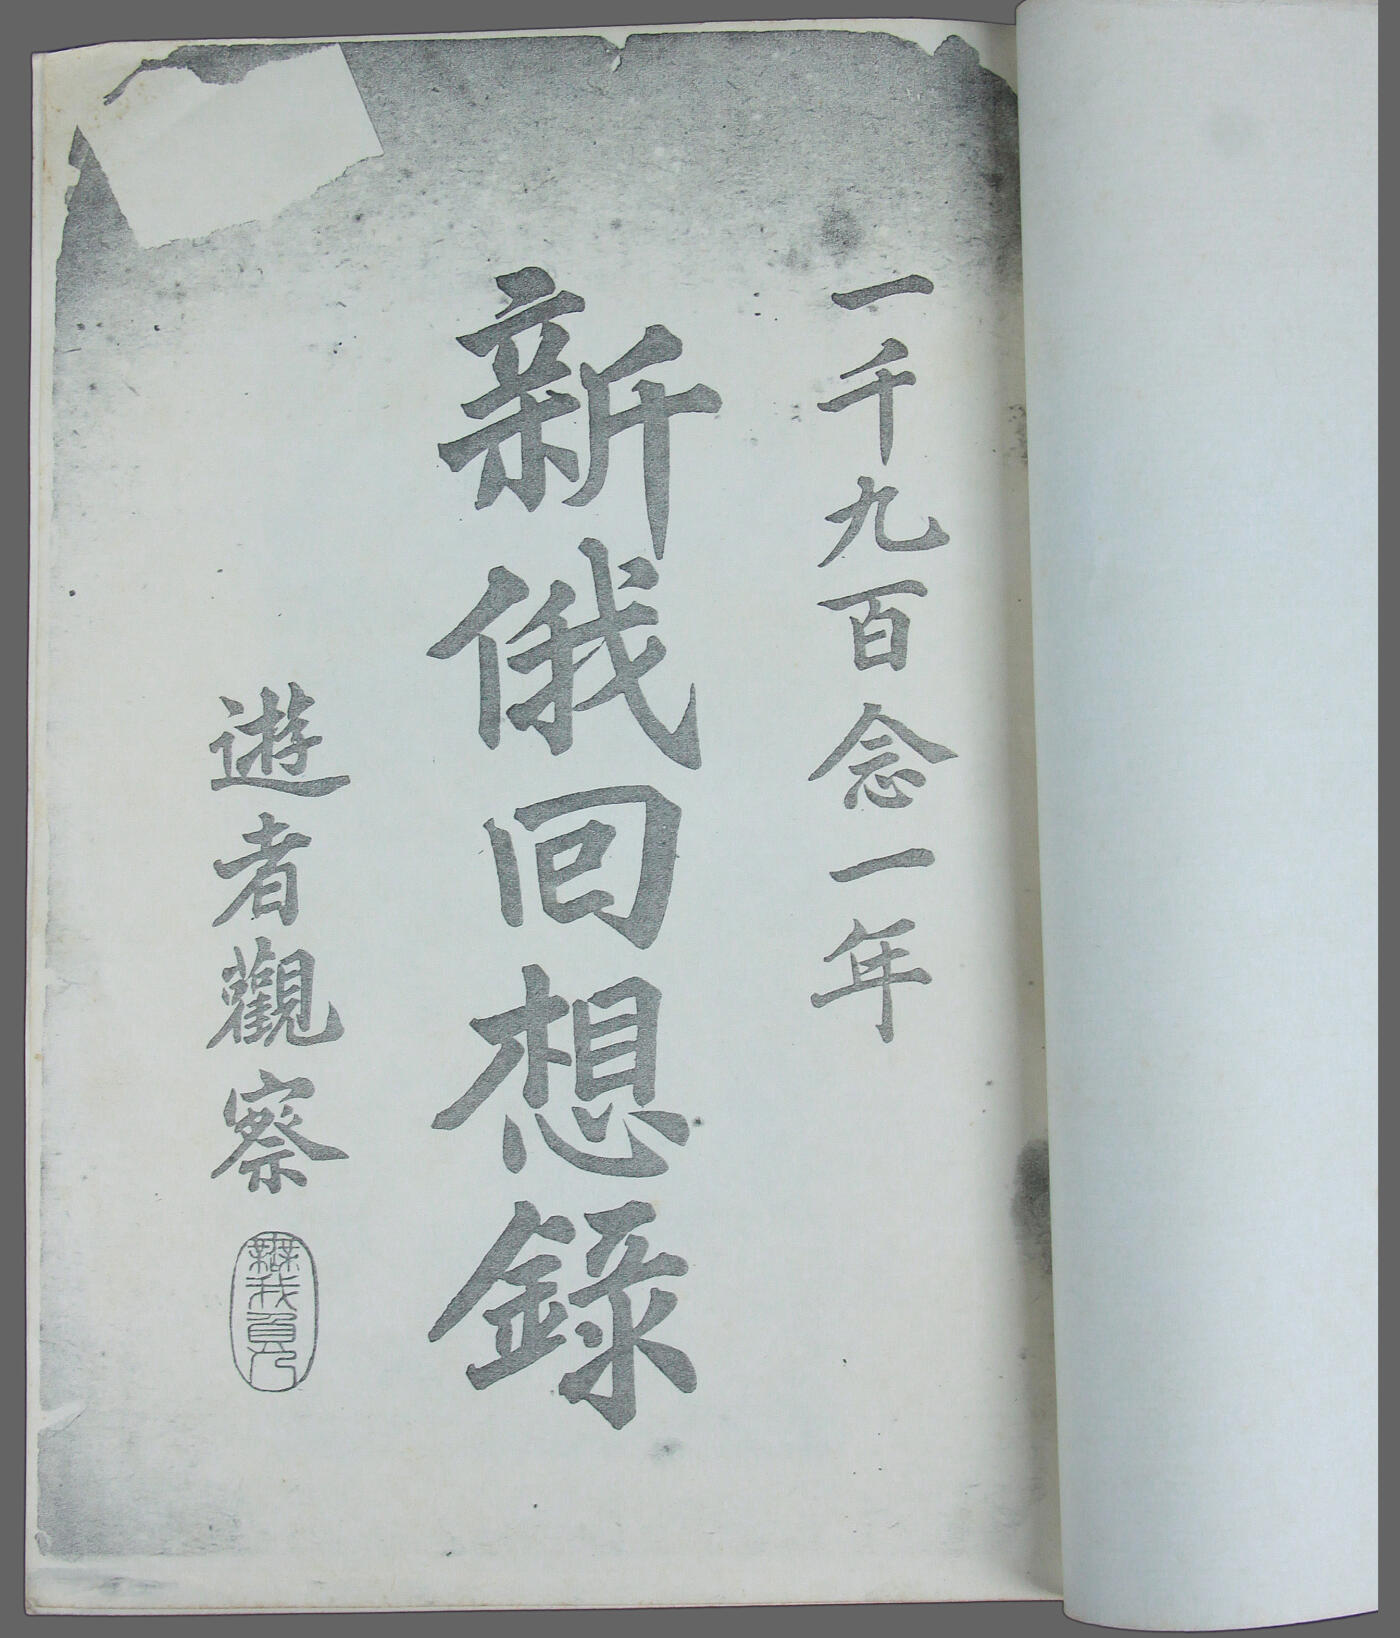 一千九百念一年
新俄回想錄
遊者觀察